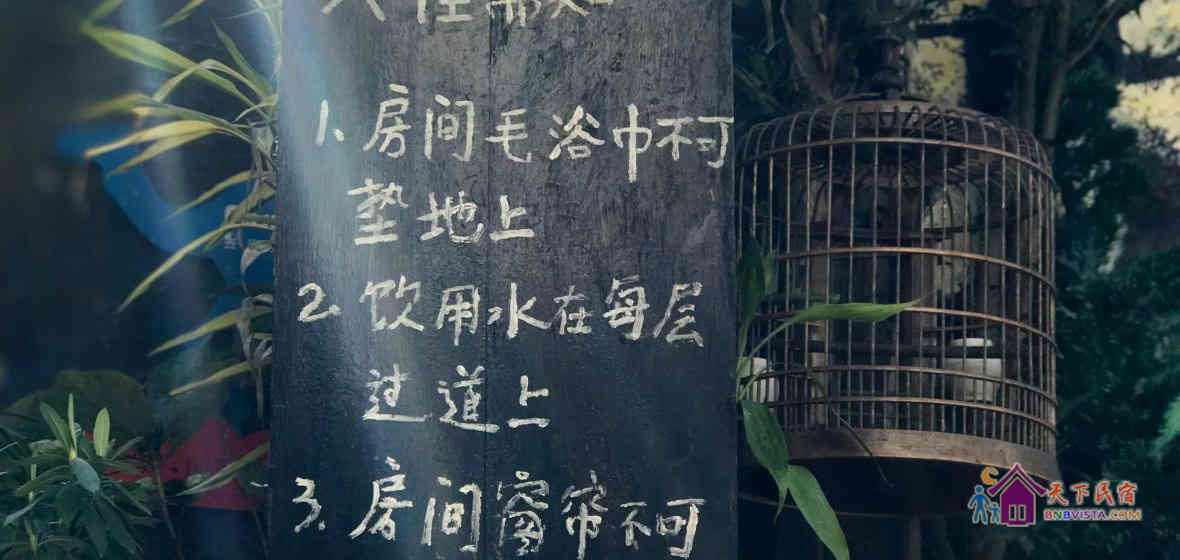 入住需知
1. 房间毛浴巾不可
垫地上
2. 饮用水在每层
过道上
3. 房间窗帘不可
天下民宿
BNBVISTA.COM